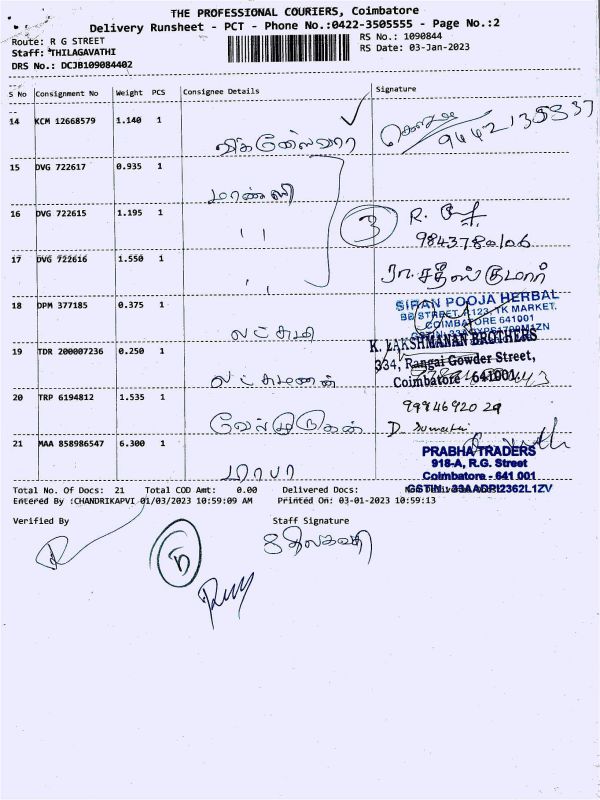 THE PROFESSIONAL COURIERS, Coimbatore
Delivery Runsheet - PCT - Phone No.:0422-3505555 - Page No.:2
Route: R G STREET
RS No.: 1090844
Staff: THILAGAVATHI
RS Date: 03-Jan-2023
DRS No.: DCJB109084402
S No Consignment No Weight PCS Consignee Details Signature
14 KCM 12668579 1.140 1
15 DVG 722617 0.935 1
16 DVG 722615 1.195 1 ι ι 3 R.
17 DVG 722616 1.550 1
18 DPM 377185 0.375 1 லட்சுமி
SIRAN POOJA HERBAL
COIMBATORE 641001
19 TDR 200007236 0.250 1 லட்சுமணன்
K. LAKSHMANAN BROTHERS
334, Rangai Gowder Street,
Coimbatore - 641001
20 TRP 6194812 1.535 1 வேல்முருகன்
21 MAA 858986547 6.300 1
PRABHA TRADERS
918-A, R.G. Street
Coimbatore - 641 001
Total No. Of Docs: 21 Total COD Amt: 0.00 Delivered Docs:
Entered By :CHANDRIKAPVI 01/03/2023 10:59:09 AM Printed On: 03-01-2023 10:59:13
Verified By Staff Signature